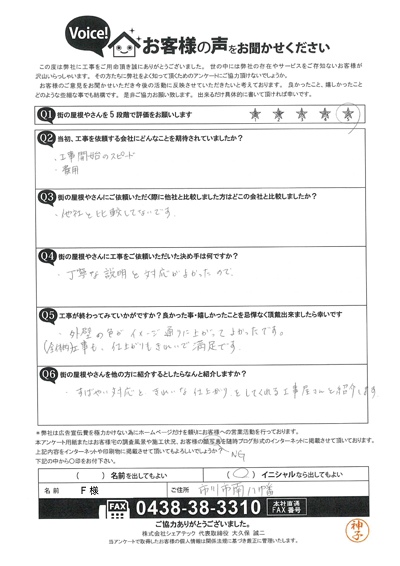 Voice! お客様の声をお聞かせください
この度は弊社に工事をご用命頂き誠にありがとうございました。 世の中には弊社の存在やサービスをご存知ないお客様が
沢山いらっしゃいます。 その方たちに弊社をよく知って頂くためのアンケートにご協力頂けないでしょうか。
お客様のご意見をお聞かせいただき今後の活動に反映させていただきたいと考えております。 良かったこと、嬉しかったこと
どのような些細な事でも結構です。 是非ご協力お願い致します。 出来るだけ具体的に書いて頂ければ幸いです。
Q1 街の屋根やさんを5段階で評価をお願いします ★ ★ ★ ★ ★
Q2 当初、工事を依頼する会社にどんなことを期待されていましたか?
・工事開始のスピード
・費用
Q3 街の屋根やさんにご依頼いただく際に他社と比較しました方はどこの会社と比較しましたか?
・他社と比較してないです。
Q4 街の屋根やさんに工事をご依頼いただいた決め手は何ですか?
・丁寧な説明と対応がよかったので、
Q5 工事が終わってみていかがですか?良かった事・嬉しかったことを忌憚なく頂戴出来ましたら幸いです
・外壁の色がイメージ通りに上がってよかったです。
工事も、仕上がりもきれいで満足です。
Q6 街の屋根やさんを他の方に紹介するとしたらなんと紹介しますか?
・すばやい対応ときれいな仕上がりをしてくれる工事屋さんと紹介します
*弊社は広告宣伝費を極力かけない為にホームページだけを頼りにお客様への営業活動を行っております。
本アンケート用紙またはお客様宅の調査風景や施工状況、お客様の顔写真を随時ブログ形式のインターネットに掲載させて頂いております。
上記内容をインターネットや印刷物に掲載させて頂いてもよろしいでしょうか? NG
下記の中から〇印をお付下さい。
( ) 名前を出してもよい (〇) イニシャルなら出してもよい
名前 F 様 ご住所 市川市南八幡
FAX 0438-38-3310 本社直通 FAX番号
ご協力ありがとうございました。
株式会社シェアテック 代表取締役 大久保 誠二
当アンケートで取得したお客様の個人情報は関係法規に基づき厳正に管理いたします。
神子